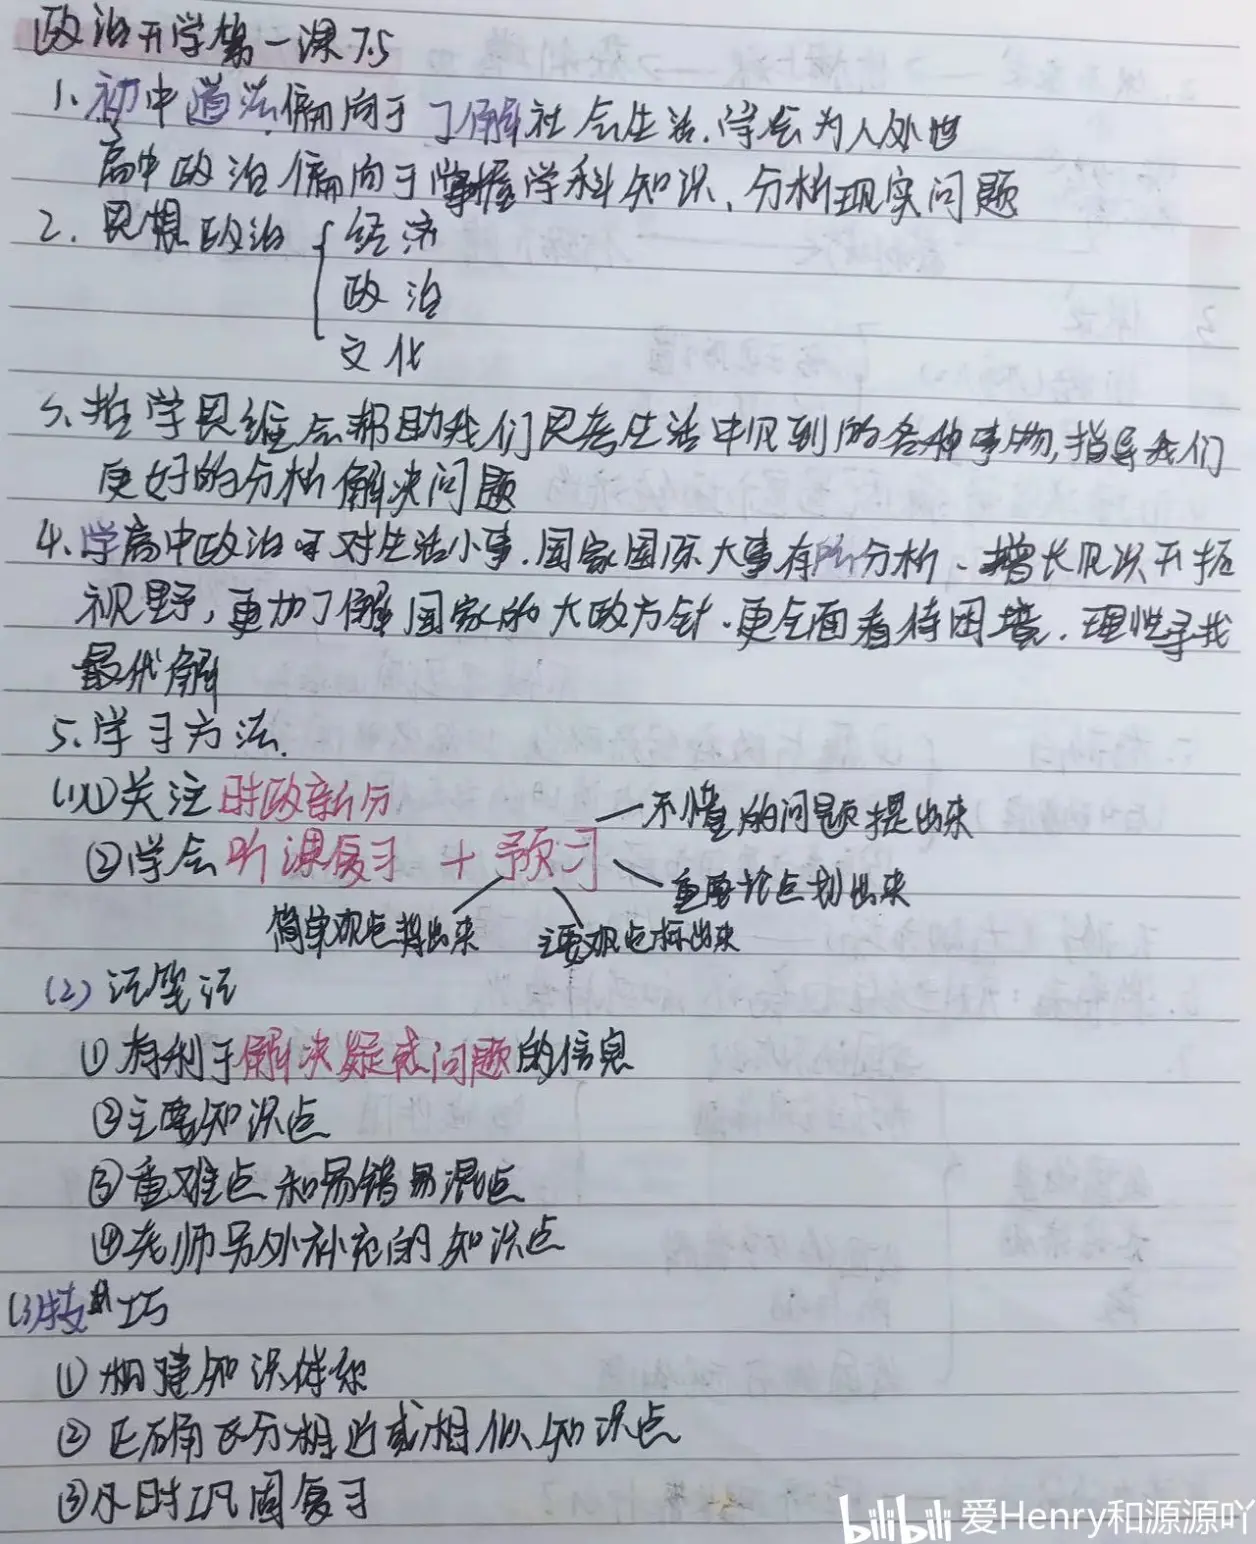 政治开学第一课 7.5
1、初中道法偏向于了解社会生活、学会为人处世
高中政治偏向于掌握学科知识、分析现实问题
2、思想政治 { 经济
政治
文化
3、哲学思维会帮助我们思考生活中见到的各种事物,指导我们
更好的分析解决问题
4、学高中政治可对生活小事、国家国际大事有所分析、增长见识开拓
视野,更加了解国家的大政方针、更全面看待困境、理性寻找
最优解
5、学习方法
(1)①关注时政新分
不懂的问题提出来
②学会听课复习 + 预习
重要论点划出来
简单观点择出来 主要观点标出来
(2)记笔记
①有利于解决疑惑问题的信息
②主要知识点
③重难点和易错易混点
④老师另外补充的知识点
(3)技巧
①构建知识体系
②正确区分相近或相似知识点
③及时巩固复习
bilibili 爱Henry和源源吖